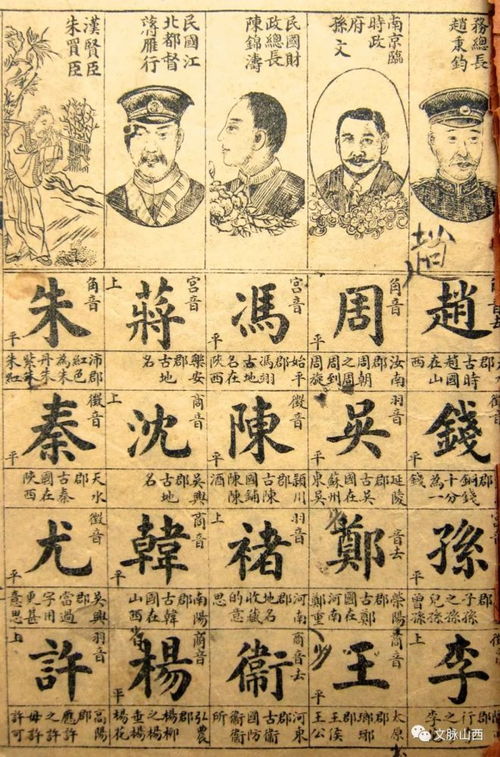 務總長
趙秉鈞
南京臨
時政
府
孫文
民國財
政總長
陳錦濤
民國江
北都督
蔣雁行
漢賢臣
朱買臣
趙
角音
趙
平
郡
古時
趙國
在山
西
徵音
錢
平
郡
銅錢
十分
為一
錢
孫
平
郡
子孫
之孫
兒孫
曾孫
李
上
郡
行
之李
角音
周
平
汝南
郡
周朝
之周
周到
周旋
羽音
吳
平
延陵
郡
古吳
國在
蘇州
東吳
音去
鄭
滎陽
郡
古鄭
國在
河南
鄭重
商音
王
平
太原
郡
瑯琊
王侯
王公
宮音
馮
平
始平
郡
馮翊
古地
名在
陝西
徵音
陳
平
潁川
郡
古陳
國
陳
酒
羽音
褚
上
河南
郡
地名
收藏
的意
思
商音去
衛
河東
郡
古衛
國防
衛衛
所
宮音
蔣
上
樂安
郡
古地
名
商音
沈
上
吳興
郡
古地
名
商音
韓
平
南陽
郡
古韓
國在
山西
省
商音
楊
平
弘農
郡
楊柳
之楊
垂楊
楊花
角音
朱
平
沛郡
紅色
為朱
丹朱
朱紅
徵音
秦
平
天水
郡
古秦
國在
陝西
徵音
尤
平
吳興
郡
當過
字用
更甚
意思
羽音
許
上
高陽
郡
應許
之許
毋許
許可
文脉山西